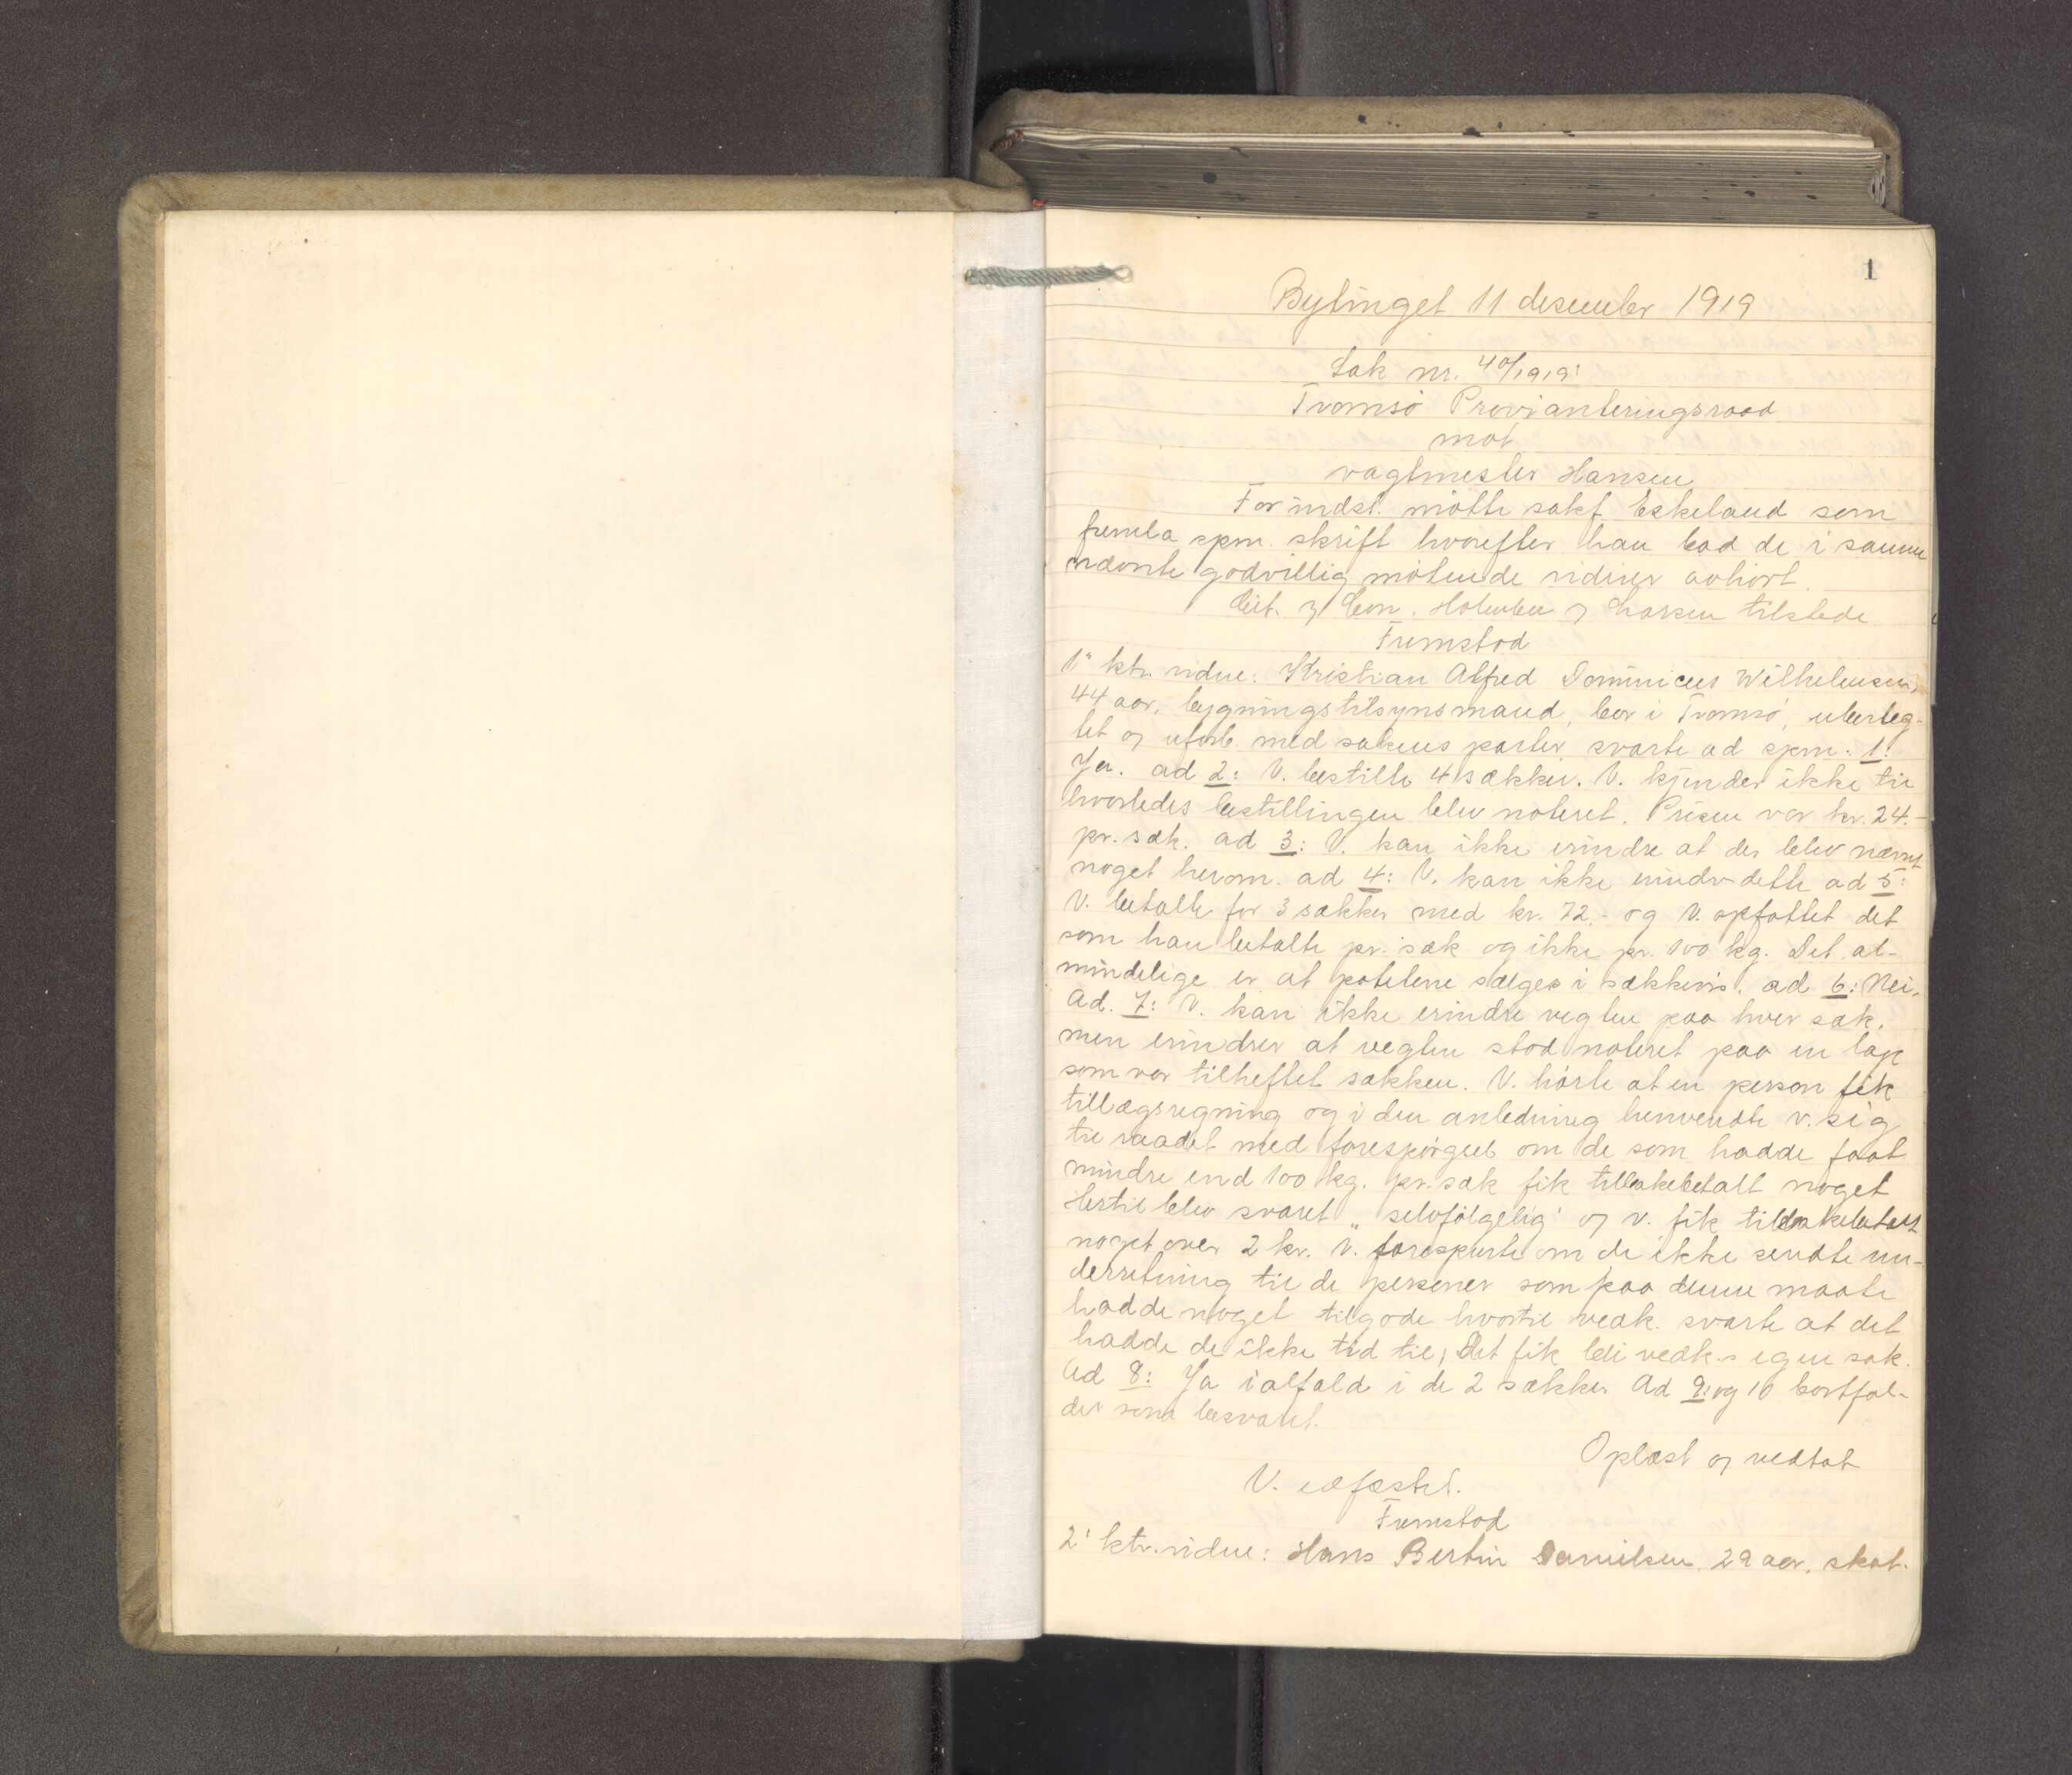 1
Bytinget 11 desember 1919
Sak nr. 40/1919:
Tromsö Provianteringsraad
mot
vagtmester Hansen
For indst. mötte sakf. Eskeland som
fremla spm. skrift hvorefter han bad de i samme
nævnte godvillig mötende vidner avhört.
Cit. og Con. Holmboe og Larsen tilstede
Fremstod
1' ktr. vidne: Kristian Alfred Dominicus Wilhelmsen,
44 aar, bygningstilsynsmand, bor i Tromsö, uberyg-
tet og uforb. med sakens parter, svarte ad spm. 1:
Ja. ad 2: V. bestilte 4 sækker. V. kjender ikke til
hvorledes bestillingen blev noteret. Prisen var kr. 24.-
pr. sæk. ad 3: V. kan ikke erindre at der blev nævnt
noget herom. ad 4: V. kan ikke erindre dette ad 5:
V. betalte for 3 sækker med kr. 72.- og V. opfattet det
som han betalte pr. sæk og ikke pr. 100 kg. Det al-
mindelige er at potetene sælges i sækkevis. ad 6: Nei.
Ad. 7: V. kan ikke erindre vegten paa hver sæk,
men erindrer at vegten stod noteret paa en lap
som var tilheftet sækken. V. hörte at en person fik
tillægsregning og i den anledning henvendte v. sig
til raadet med forespörgsel om de som hadde faat
mindre end 100 kg. pr. sæk fik tilbakebetalt noget
Hertil blev svaret „selvfölgelig" og v. fik tilbakebetalt
noget over 2 kr. V. forespurte om de ikke sendte un-
derretning til de personer som paa denne maate
hadde noget tilgode hvortil vedk. svarte at det
hadde de ikke tid til, Det fik bli vedk.s egen sak.
Ad 8: Ja ialfald i de 2 sækker Ad 9: og 10 bortfal-
der som besvaret.
Oplæst og vedtat
V. edfæstet.
Fremstod
2' ktr. vidne: Hans Bertin Danielsen, 29 aar, skat-